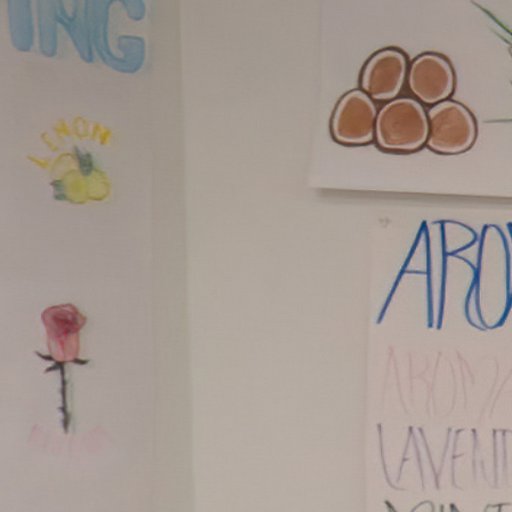 ING
LEMON
ARO
AROMA
LAVEND